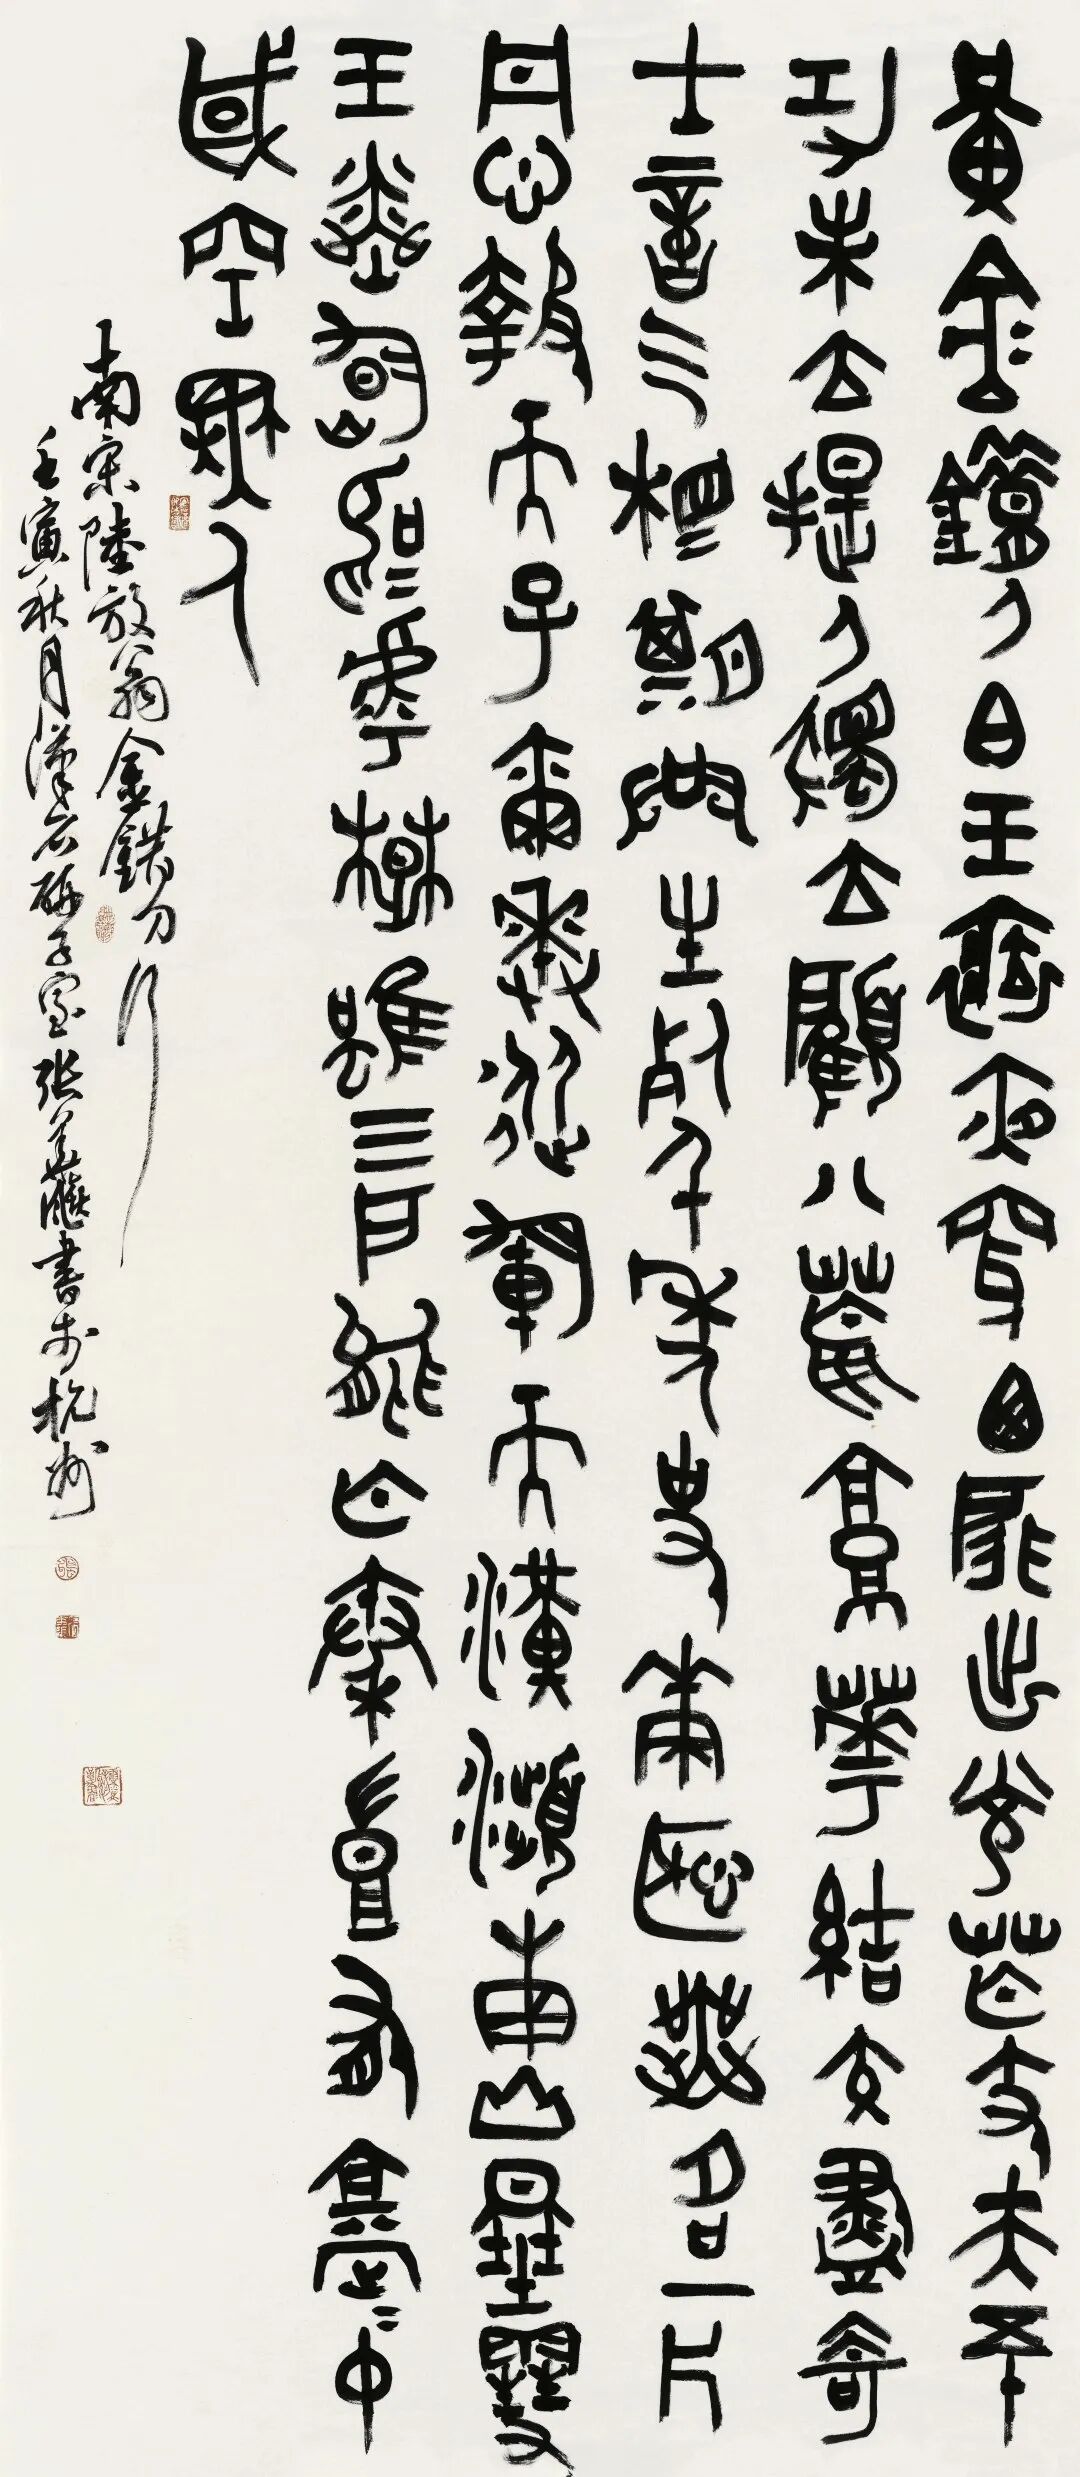 黃金錯刀白玉裝夜穿窗扉出光芒丈夫五十
功未立提刀獨立顧八荒京華結交盡奇
士意气相期共生死千年史册恥無名一片
丹心報天子爾來從軍天漢濱南山曉雪
玉嶙峋嗚呼楚雖三戶能亡秦豈有堂堂中
國空無人
南宋陸放翁金錯刀行
壬寅秋月漢石室張書於杭州